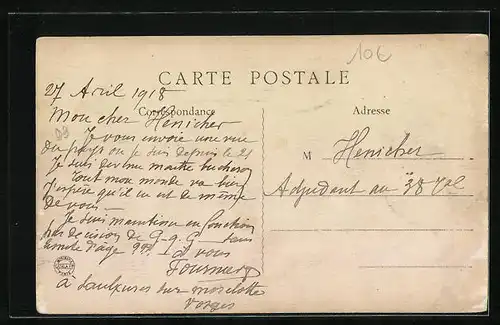 10€
CARTE POSTALE
27 Avril 1918
Correspondance
Adresse
Mon cher Henicher
Je vous envoie une vue
du pays ou je suis depuis le 21
Je suis devenu maitre bucheron
tout mon monde va bien
J'espère qu'il en est de même
de vous
Je suis maintenu en fonction
par décision de G.Q.G. sans
limite d'âge
à vous
Fournier
à Saulxures sur moselotte
Vosges
M Henicher
Adjudant au 38